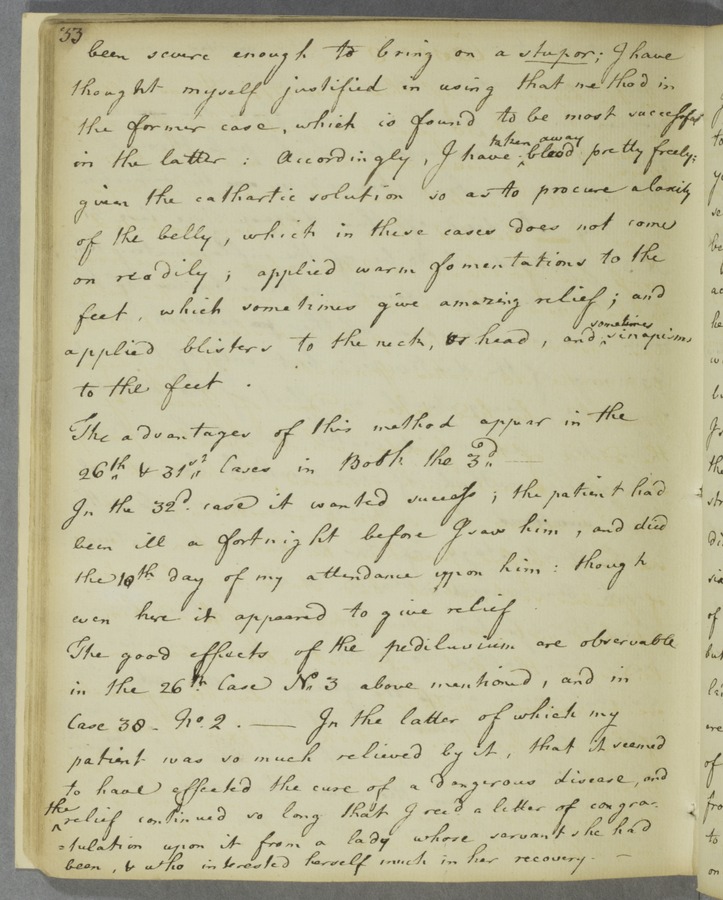 53
been severe enough to bring on a stupor; I have
thought myself justified in using that method in
the former case, which is found to be most successful
in the latter: Accordingly, I have taken away blood pretty freely;
given the cathartic solution so as to procure a laxity
of the belly, which in these cases does not come
on readily; applied warm fomentations to the
feet, which sometimes give amazing relief; and
applied blisters to the neck, or head, and sometimes sinapisms
to the feet.
The advantages of this method appear in the
26th & 31st Cases in Book the 3d
In the 32d. case it wanted success; the patient had
been ill a fortnight before I saw him, and died
the 10th day of my attendance upon him: though
even here it appeared to give relief
The good effects of the pediluvium are observable
in the 26th Case No. 3 above mentioned, and in
Case 38 - No. 2. — In the latter of which my
patient was so much relieved by it, that it seemed
to have effected the cure of a dangerous disease, and
the relief continued so long that I rec'd a letter of congra-
=tulation upon it from a lady whose servant she had
been, & who interested herself much in her recovery. —